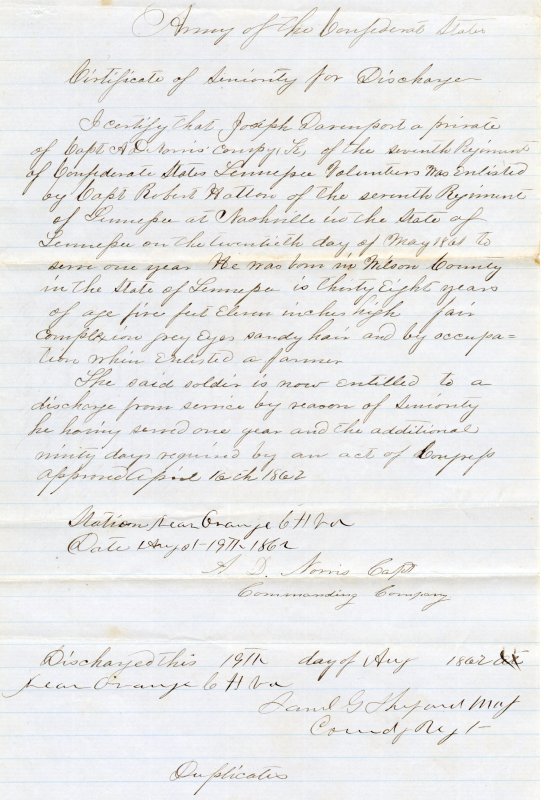 Army of the Confederat States
Certificate of Seniority for Discharge
I certify that Joseph Davenport a private
of Capt A D Norris comp'y, K, of the seventh Regiment
of Confederate States Tennessee Volunteers was Enlisted
by Capt Robert Hatton of the seventh Regiment
of Tennessee at Nashville in the State of
Tennessee on the twentieth day of May 1861 to
serve one year He was born in Wilson County
in the State of Tennessee is thirty Eight years
of age five feet Eleven inches high fair
complexion grey Eyes sandy hair and by occupa=
tion when enlisted a farmer
The said soldier is now entitled to a
discharge from service by reason of Seniority
he having served one year and the additional
ninety days required by an act of Congress
approved April 16th 1862
Station near Orange C H Va
Date Augst 19th 1862
A. D. Norris Capt
Commanding Company
Discharged this 19th day of Aug 1862
near Orange C H Va
Saml G Shepard Maj
Comdg Regt
Duplicates